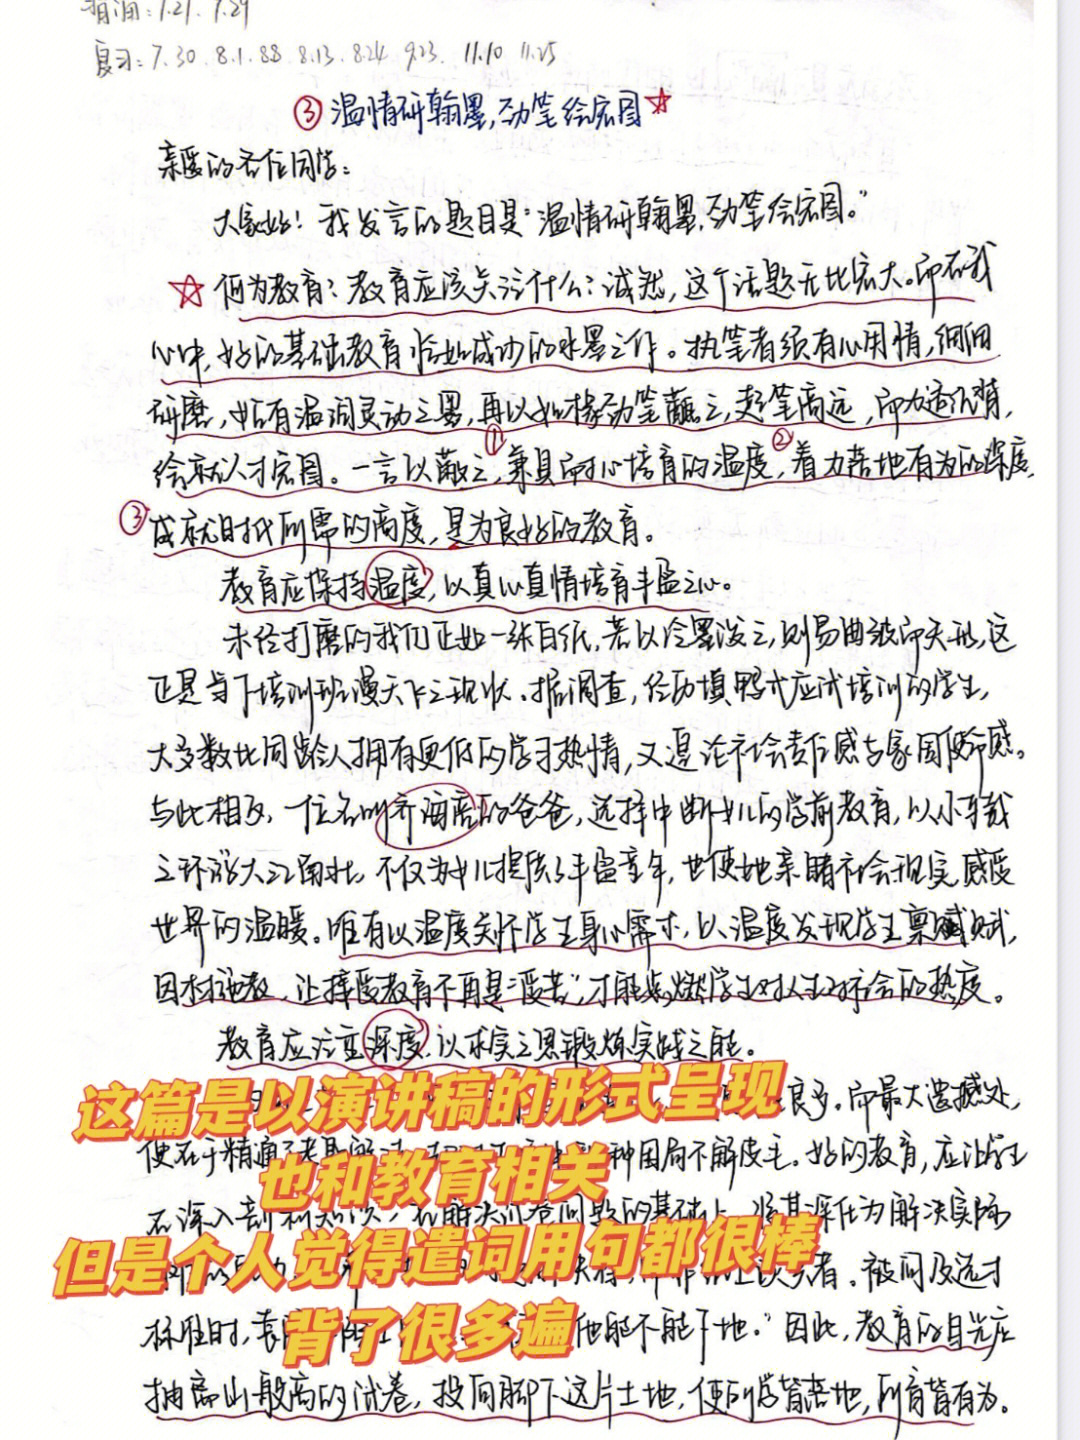 背诵:7.27. 7.29
复习:7.30. 8.1. 8.8 8.13. 8.24 9.23. 11.10 11.25
③温情研翰墨,劲笔绘宏图☆
亲爱的各位同学:
大家好!我发言的题目是“温情研翰墨,劲笔绘宏图。”
☆何为教育?教育应该关注什么?诚然,这个话题无比宏大。而在我
心中,好的基础教育恰如成功的水墨之作。执笔者须有心用情,细细
研磨,始有温润灵动之墨,再以如椽劲笔蘸之,起笔高远,而力透纸背,
绘就人才宏图。一言以蔽之,①兼具耐心培育的温度,②着力落地有为的深度,
③成就时代所需的高度,是为良好的教育。
教育应保持温度,以真心真情培育丰盈之心。
未经打磨的我们正如一张白纸,若以冷墨泼之,则易曲皱而失形,这
正是当下培训班漫天飞之现状。据调查,经历填鸭式应试培训的学生,
大多数比同龄人拥有更低的学习热情,又遑论社会责任感与家国使命感。
与此相反,一位名叫齐海亮的爸爸,选择中断女儿的学前教育,以小车载
之环游大江南北,不仅为女儿提供了丰盈童年,也使她亲睹社会现实,感受
世界的温暖。唯有以温度关怀学生身心需求,以温度发现学生禀赋,
因材施教,让接受教育不再是“受苦”,才能点燃学生对人生对社会的热度。
教育应注重深度,以求实之思锻炼实践之能。
良多。而最大遗憾处,
便在于精通了
种困局不解皮毛。好的教育,应让学生
在深入剖析知识,在解决试卷问题的基础上,将其深化为解决实际
者。被问及选才
标准时,袁隆平
他能不能下地。”因此,教育的目光应
抽离山般高的试卷,投向脚下这片土地,使所学皆落地,所育皆有为。
这篇是以演讲稿的形式呈现
也和教育相关
但是个人觉得遣词用句都很棒
背了很多遍